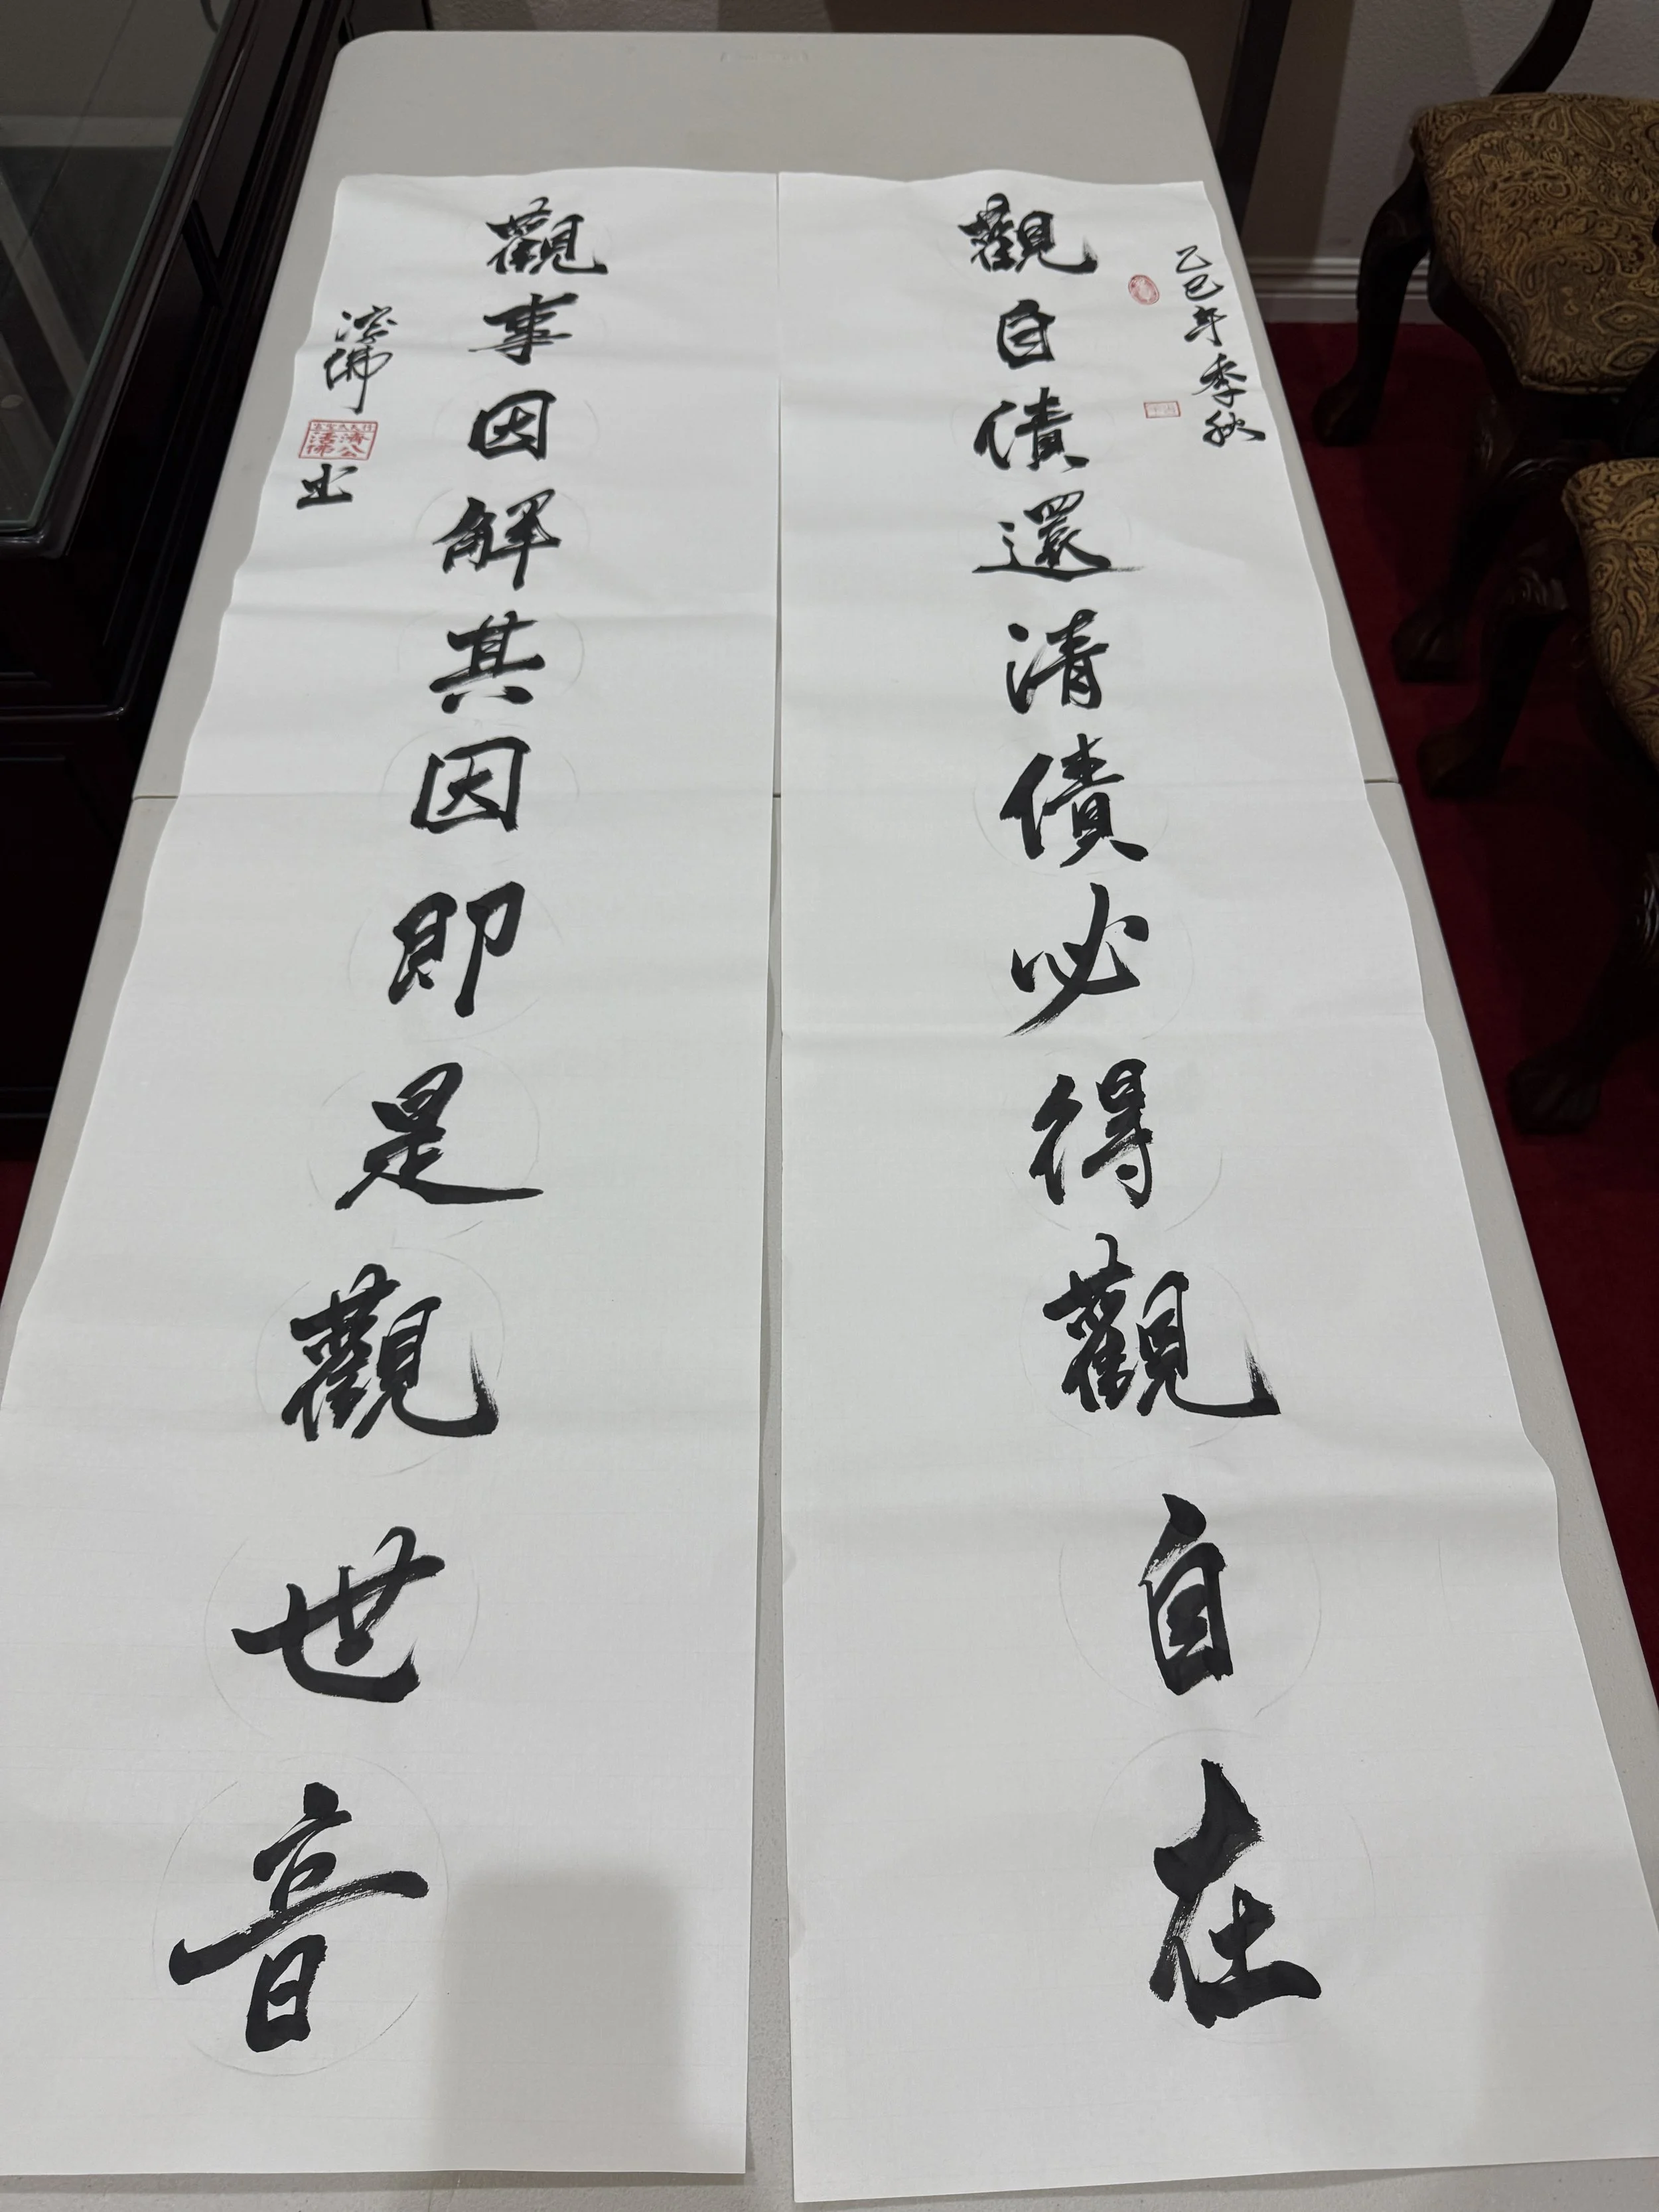 乙巳年季秋
觀自債還清債必得觀自在
觀事因解其因即是觀世音
濟佛
濟公
活佛